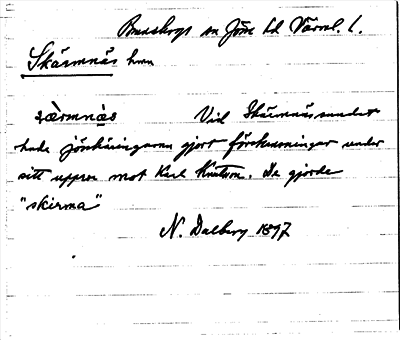 Brunskogs sn Jösse hd Värml. l.
Skärmnäs hmn
sæ̀rmnæ̀s Vid Skärmnässundet
hade jösshäringarna gjort förskansningar under
sitt uppror mot Karl Knutson. De gjorde
"skierma"
N. Dalberg 1897